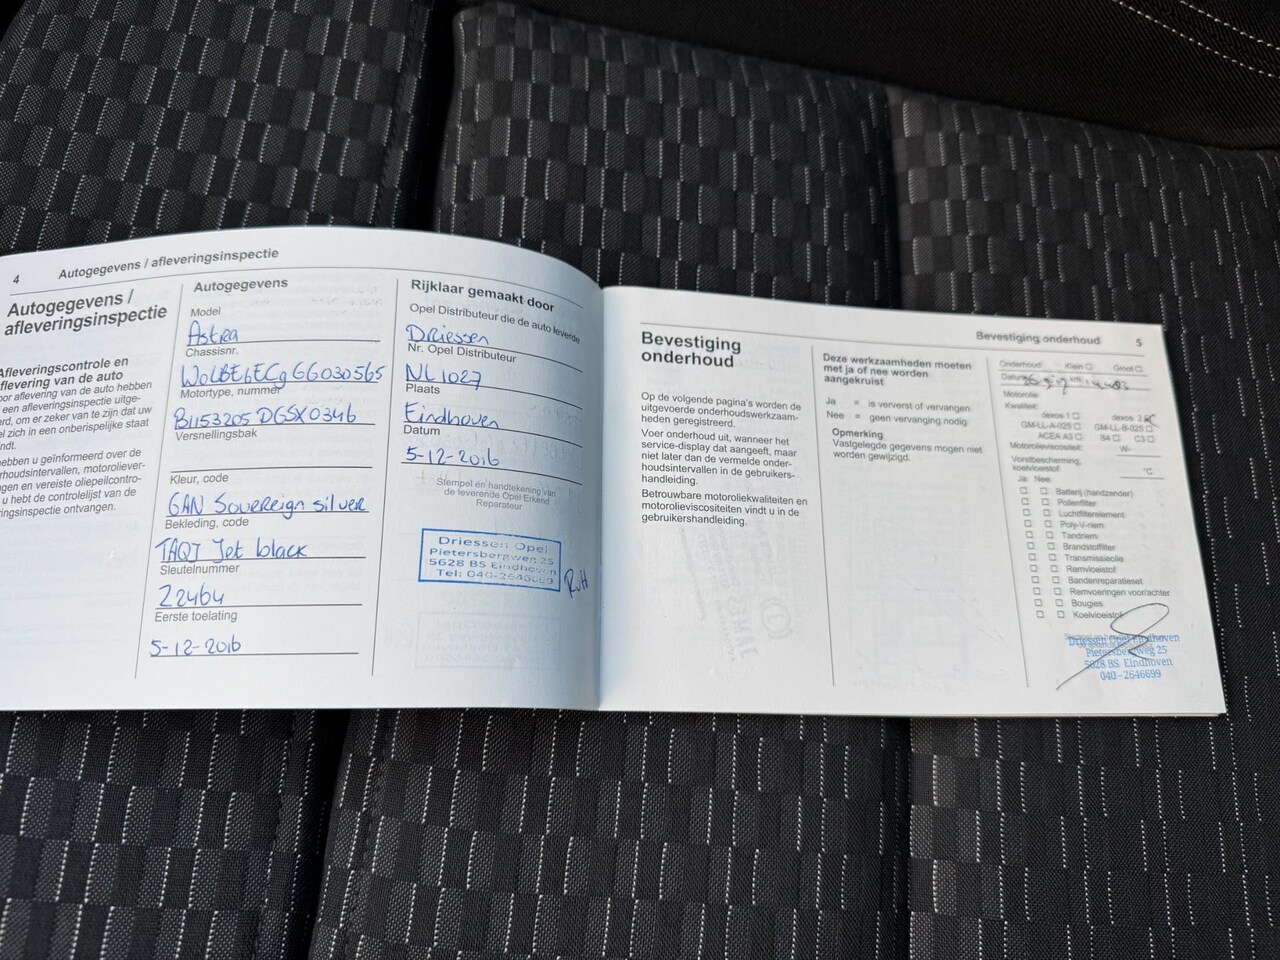 4 Autogegevens / afleveringsinspectie
Autogegevens /
afleveringsinspectie
Afleveringscontrole en
aflevering van de auto
aflevering van de auto hebben
een afleveringsinspectie uitge-
om er zeker van te zijn dat uw
zich in een onberispelijke staat
hebben u geïnformeerd over de
motoroliever-
gen en vereiste oliepeilcontro-
u hebt de controlelijst van de
ontvangen.
Autogegevens
Model
Astra
Chassisnr.
W0LBE6EC9GG030565
Motortype, nummer
B11153205 DGSX0346
Versnellingsbak
Kleur, code
GAN Sovereign silver
Bekleding, code
TAQT Jet black
Sleutelnummer
Z2464
Eerste toelating
5-12-2016
Rijklaar gemaakt door
Opel Distributeur die de auto leverde
Driessen
Nr. Opel Distributeur
NL 1027
Plaats
Eindhoven
Datum
5-12-2016
Stempel en handtekening van
de leverende Opel Erkend
Reparateur
Driessen Opel
Pietersbergweg 25
5628 BS Eindhoven
Tel: 040-2646699
Bevestiging onderhoud 5
Bevestiging
onderhoud
Op de volgende pagina's worden de
uitgevoerde onderhoudswerkzaam-
heden geregistreerd.
Voer onderhoud uit, wanneer het
service-display dat aangeeft, maar
niet later dan de vermelde onder-
houdsintervallen in de gebruikers-
handleiding.
Betrouwbare motoroliekwaliteiten en
motorolieviscositeiten vindt u in de
gebruikershandleiding.
Deze werkzaamheden moeten
met ja of nee worden
aangekruist
Ja = is ververst of vervangen
Nee = geen vervanging nodig
Opmerking
Vastgelegde gegevens mogen niet
worden gewijzigd.
Onderhoud: Klein Groot
Datum
Motorolie
Kwaliteit:
dexos 1 dexos 2
GM-LL-A-025 GM-LL-B-025
ACEA A3 B4 C3
Motorolieviscositeit: W-
Vorstbescherming,
koelvloeistof: °C
Ja Nee
Batterij (handzender)
Pollenfilter
Luchtfilterelement
Poly-V-riem
Tandriem
Brandstoffilter
Transmissieolie
Remvloeistof
Bandenreparatieset
Remvoeringen voor/achter
Bougies
Koelvloeistof
Driessen Opel Eindhoven
Pietersbergweg 25
5628 BS Eindhoven
040 - 2646699